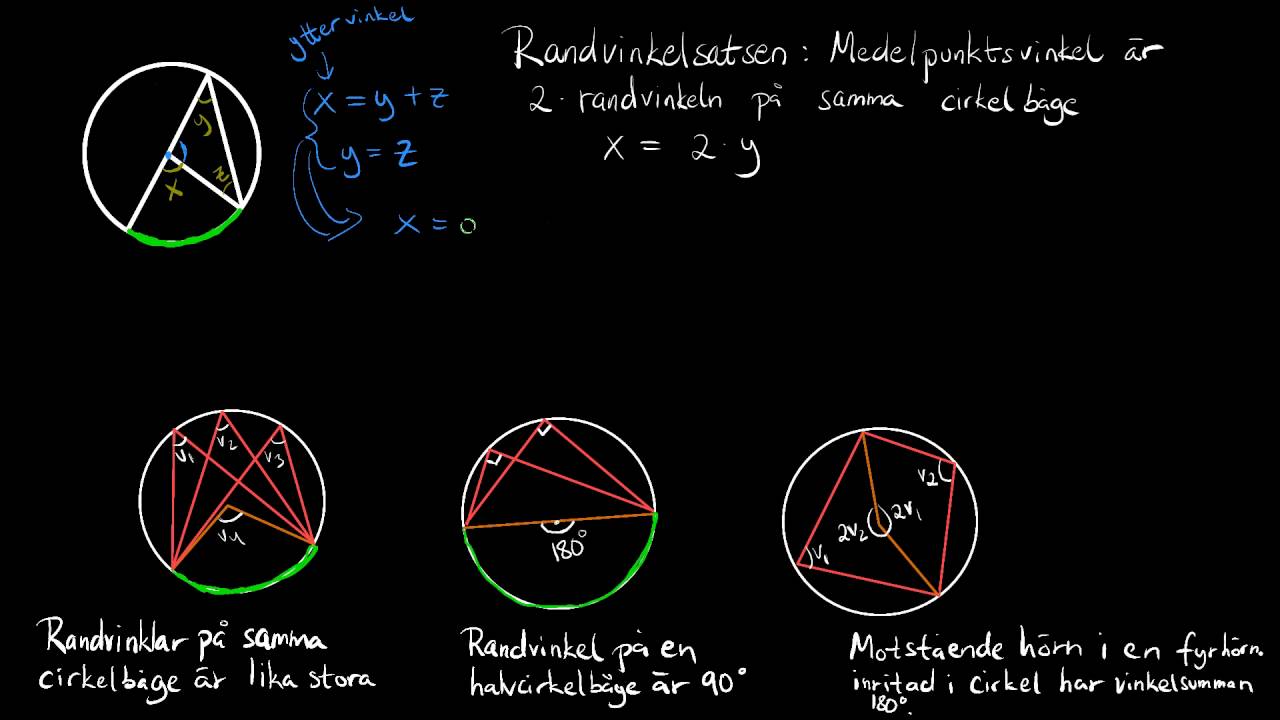 yttervinkel
x = y + z
y = z
x =
y
x
z
Randvinkelsatsen : Medelpunktsvinkel är
2 · randvinkeln på samma cirkelbåge
x = 2 · y
v1
v2
v3
v4
Randvinklar på samma
cirkelbåge är lika stora
180°
Randvinkel på en
halvcirkelbåge är 90°
v2
2v1
2v2
v1
Motstående hörn i en fyrhörn.
inritad i cirkel har vinkelsumman
180°.